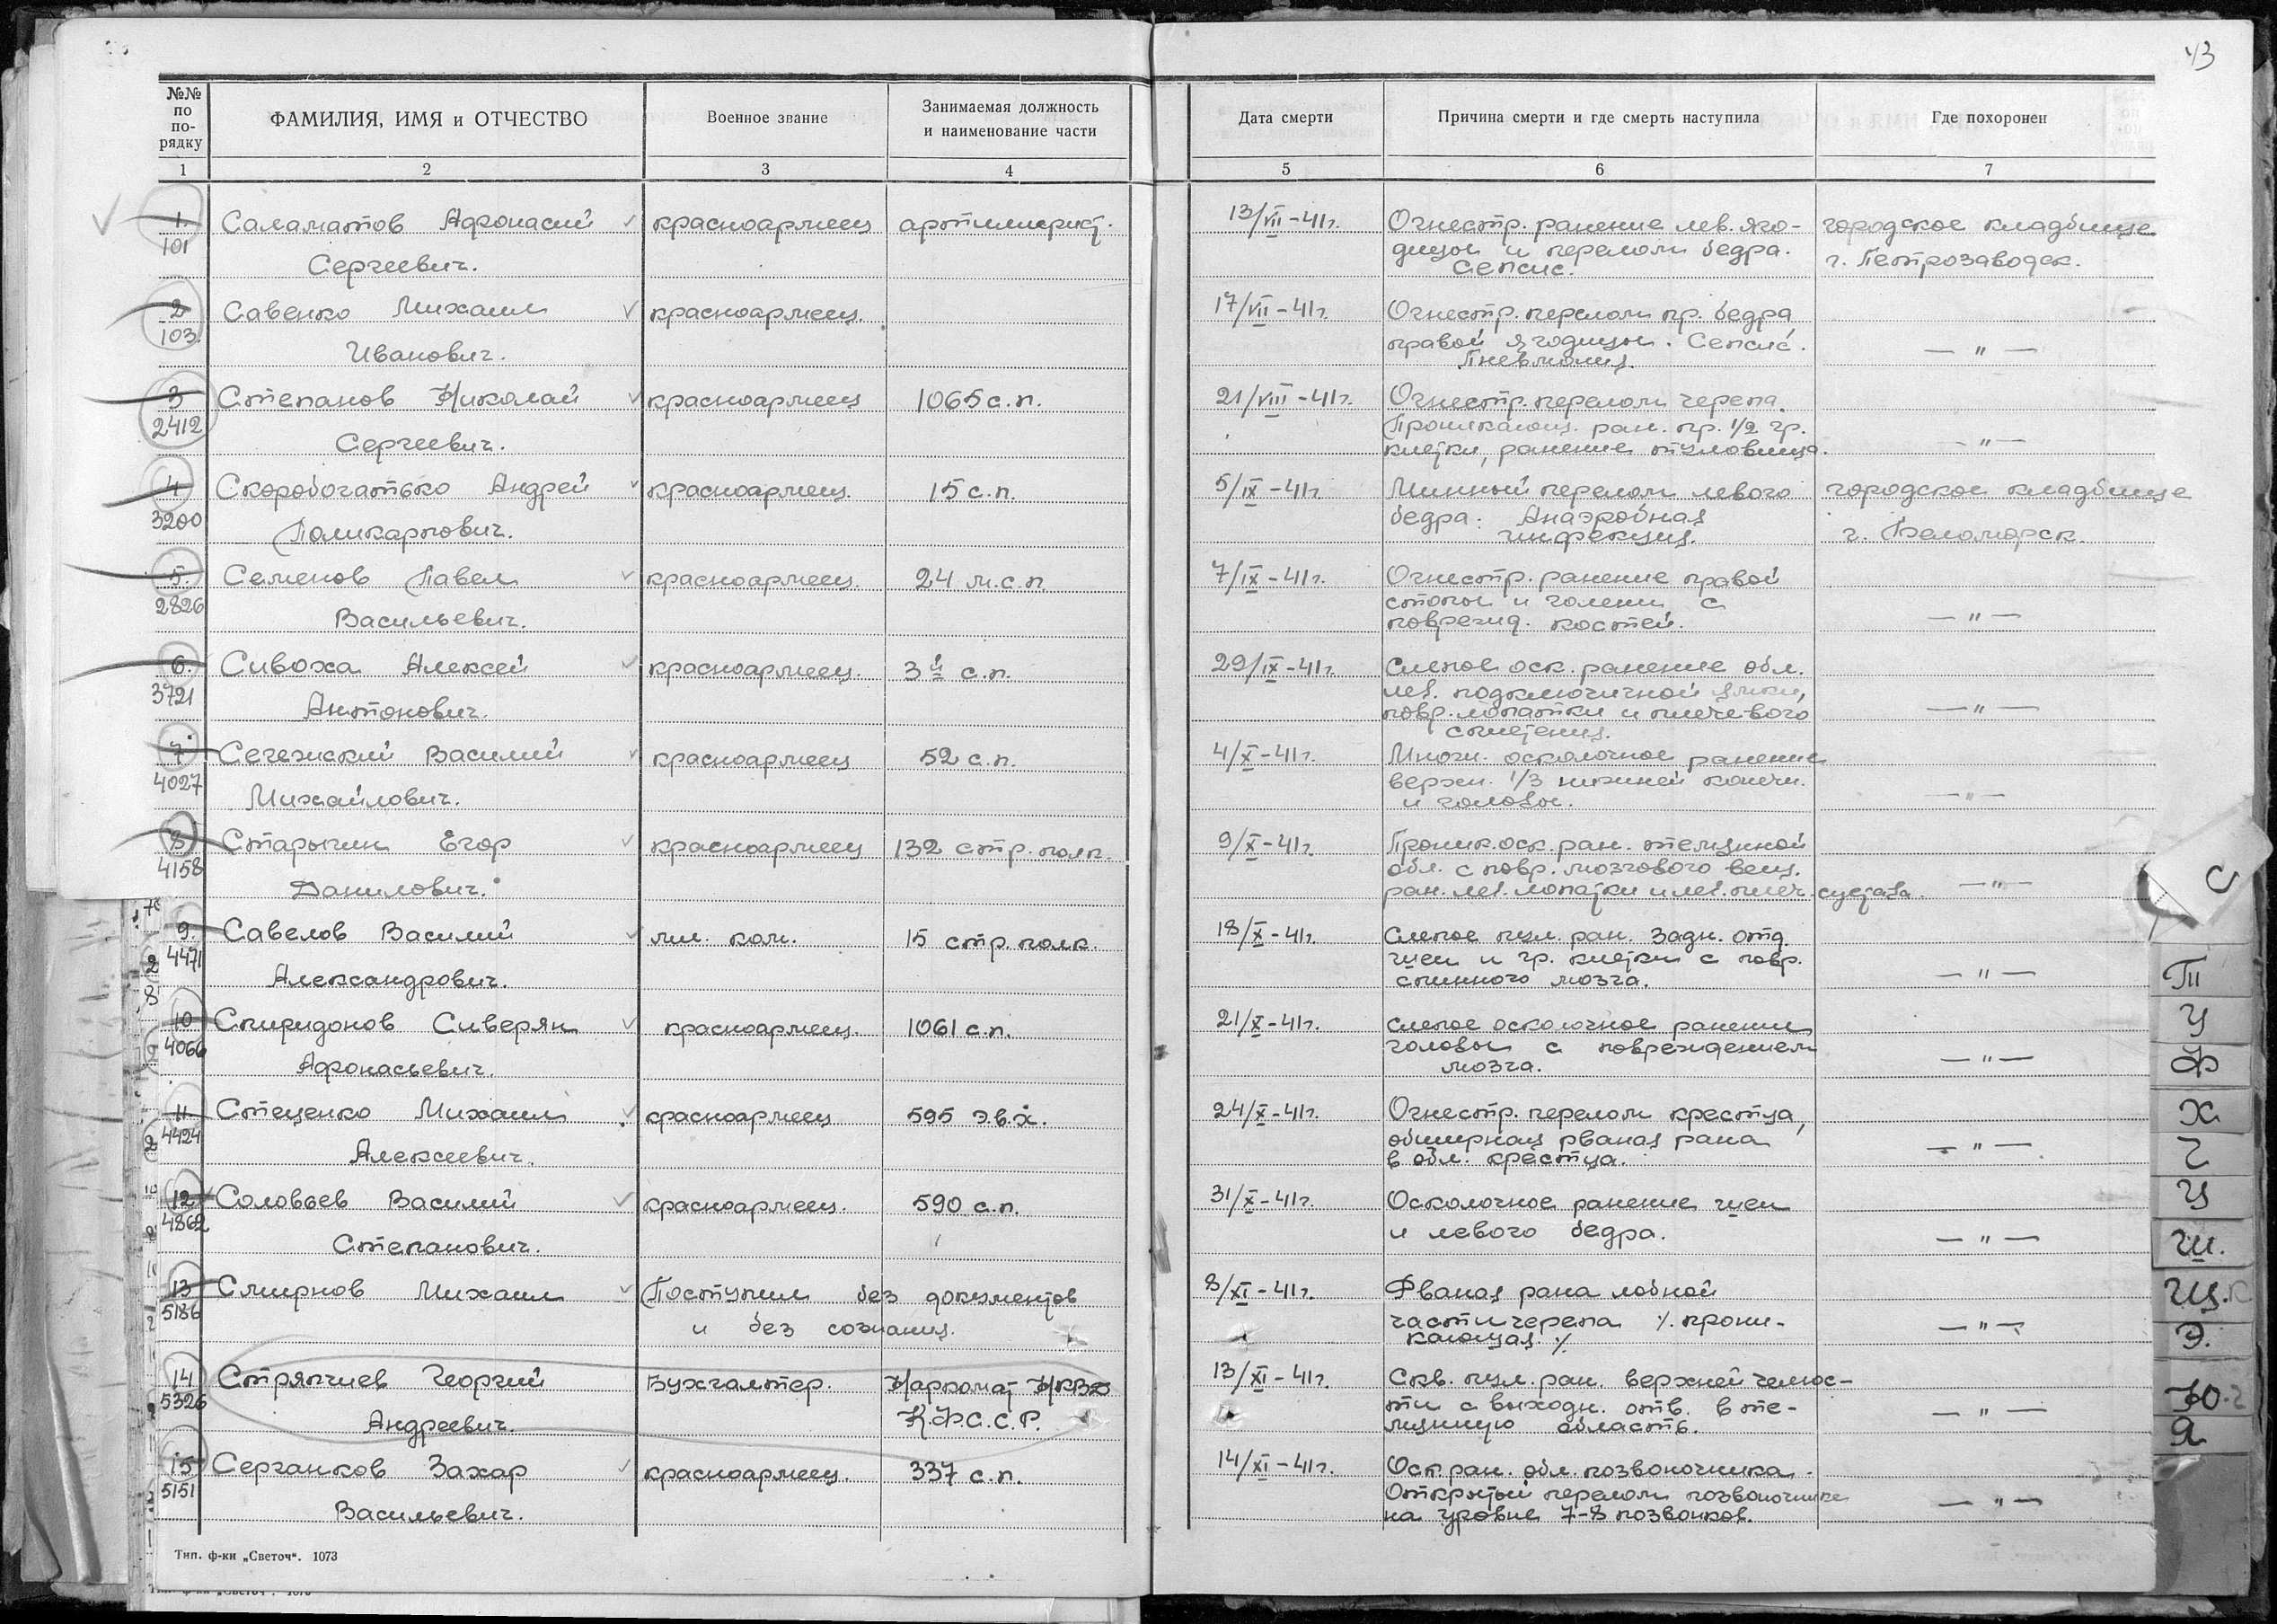 43
№№ по по-рядку
ФАМИЛИЯ, ИМЯ и ОТЧЕСТВО
Военное звание
Занимаемая должность и наименование части
Дата смерти
Причина смерти и где смерть наступила
Где похоронен
1 2 3 4 5 6 7
1. Саламатов Афонасий красноармеец артиллерист. 13/VII-41г. Огнестр. ранение лев. яго- городское кладбище
101 Сергеевич. дицы и перелом бедра. г. Петрозаводск.
Сепсис.
2 Савенко Михаил красноармеец. 17/VII-41г. Огнестр. перелом пр. бедра,
103 Иванович. правой ягодицы. Сепсис. — " —
Пневмония.
3 Степанов Николай красноармеец 1065 с.п. 21/VIII-41г. Огнестр. перелом черепа.
2412 Проникающ. ран. пр. 1/2 гр.
Сергеевич. клетки, ранение туловища. — " —
4 Скоробогатько Андрей красноармеец. 15 с.п. 5/IX-41г. Минный перелом левого городское кладбище
3200 Поликарпович. бедра: Анаэробная г. Беломорск.
инфекция.
5. Семенов Павел красноармеец. 24 м.с.п. 7/IX-41г. Огнестр. ранение правой
2826 стопы и голени с
Васильевич. поврежд. костей. — " —
6. Сивоха Алексей красноармеец. 3й с.п. 29/IX-41г. Слепое оск. ранение обл.
3721 лев. подключичной ямки,
Антонович. повр. лопатки и плечевого — " —
сплетения.
7 Сечежский Василий красноармеец 52 с.п. 4/X-41г. Множ. осколочное ранение
4027 верхн. 1/3 нижней конечн.
Михайлович. и головы. — " —
8 Старыгин Егор красноармеец 132 стр. полк. 9/X-41г. Проник. оск. ран. теменной
4158 обл. с повр. мозгового вещ.
Данилович. ран. лев. лопатки и лев. плеч. сустава. — " —
9. Савелов Василий мл. ком. 15 стр. полк. 18/X-41г. Слепое пул. ран. задн. отд.
4471 шеи и гр. клетки с повр.
Александрович. спинного мозга. — " —
10 Спиридонов Сиверян красноармеец. 1061 с.п. 21/X-41г. Слепое осколочное ранение
4066 головы с повреждением
Афонасьевич. мозга. — " —
11 Стеценко Михаил красноармеец 595 э.в.х. 24/X-41г. Огнестр. перелом крестца,
4424 обширная рваная рана
Алексеевич. в обл. крестца. — " —
12 Соловьев Василий красноармеец. 590 с.п. 31/X-41г. Осколочное ранение шеи
4862 Степанович. и левого бедра. — " —
13 Смирнов Михаил Поступил без документов 8/XI-41г. Рваная рана лобной
5186 и без сознания. части черепа /. прони- — " —
кающая /.
14 Стряпчиев Георгий Бухгалтер. Наркомат НКВД 13/XI-41г. Скв. пул. ран. верхней челюс-
5326 Андреевич. К.Ф.С.С.Р. ти с выходн. отв. в те- — " —
менную область.
15 Серганков Захар красноармеец. 337 с.п. 14/XI-41г. Оск. ран. обл. позвоночника.
5151 Открытый перелом позвоночника
Васильевич. на уровне 7-8 позвонков. — " —
Тип. ф-ки „Светоч“. 1073
С
Т
У
Ф
Х
Ч
Ц
Ш.
Щ.
Э.
Ю.
Я